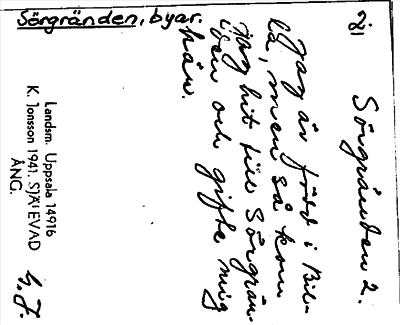 Sörgränden, byar.
2.
Sörgränden 2.
Jag är född i Bil-
la, men så kom
jag hit till Sörgrän-
den och gifte mig
här.
Landsm. Uppsala 14916
K. Jonsson 1941. SJÄLEVAD
ÅNG.
G. J.